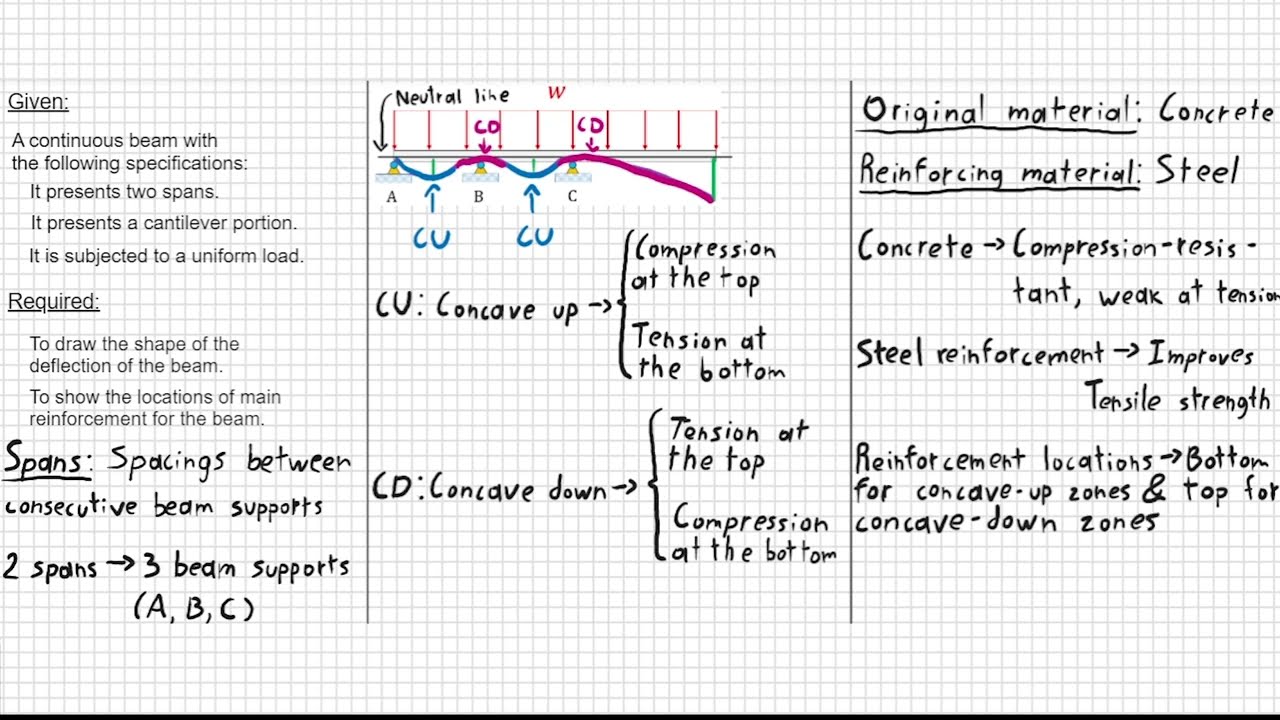 Given:
A continuous beam with
the following specifications:
It presents two spans.
It presents a cantilever portion.
It is subjected to a uniform load.
Required:
To draw the shape of the
deflection of the beam.
To show the locations of main
reinforcement for the beam.
Spans: Spacings between
consecutive beam supports
2 spans → 3 beam supports
(A, B, C)
Neutral line
W
CD
CD
A
B
C
CU
CU
CU: Concave up →
Compression
at the top
Tension at
the bottom
CD: Concave down →
Tension at
the top
Compression
at the bottom
Original material: Concrete
Reinforcing material: Steel
Concrete → Compression-resis-
tant, weak at tension
Steel reinforcement → Improves
Tensile strength
Reinforcement locations → Bottom
for concave-up zones & top for
concave-down zones